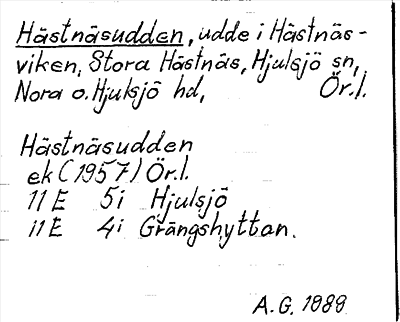 Hästnäsudden, udde i Hästnäs-
viken, Stora Hästnäs, Hjulsjö sn,
Nora o. Hjulsjö hd, Ör.l.
Hästnäsudden
ek (1957) Ör.l.
11 E 5i Hjulsjö
11 E 4i Grängshyttan.
A.G. 1989